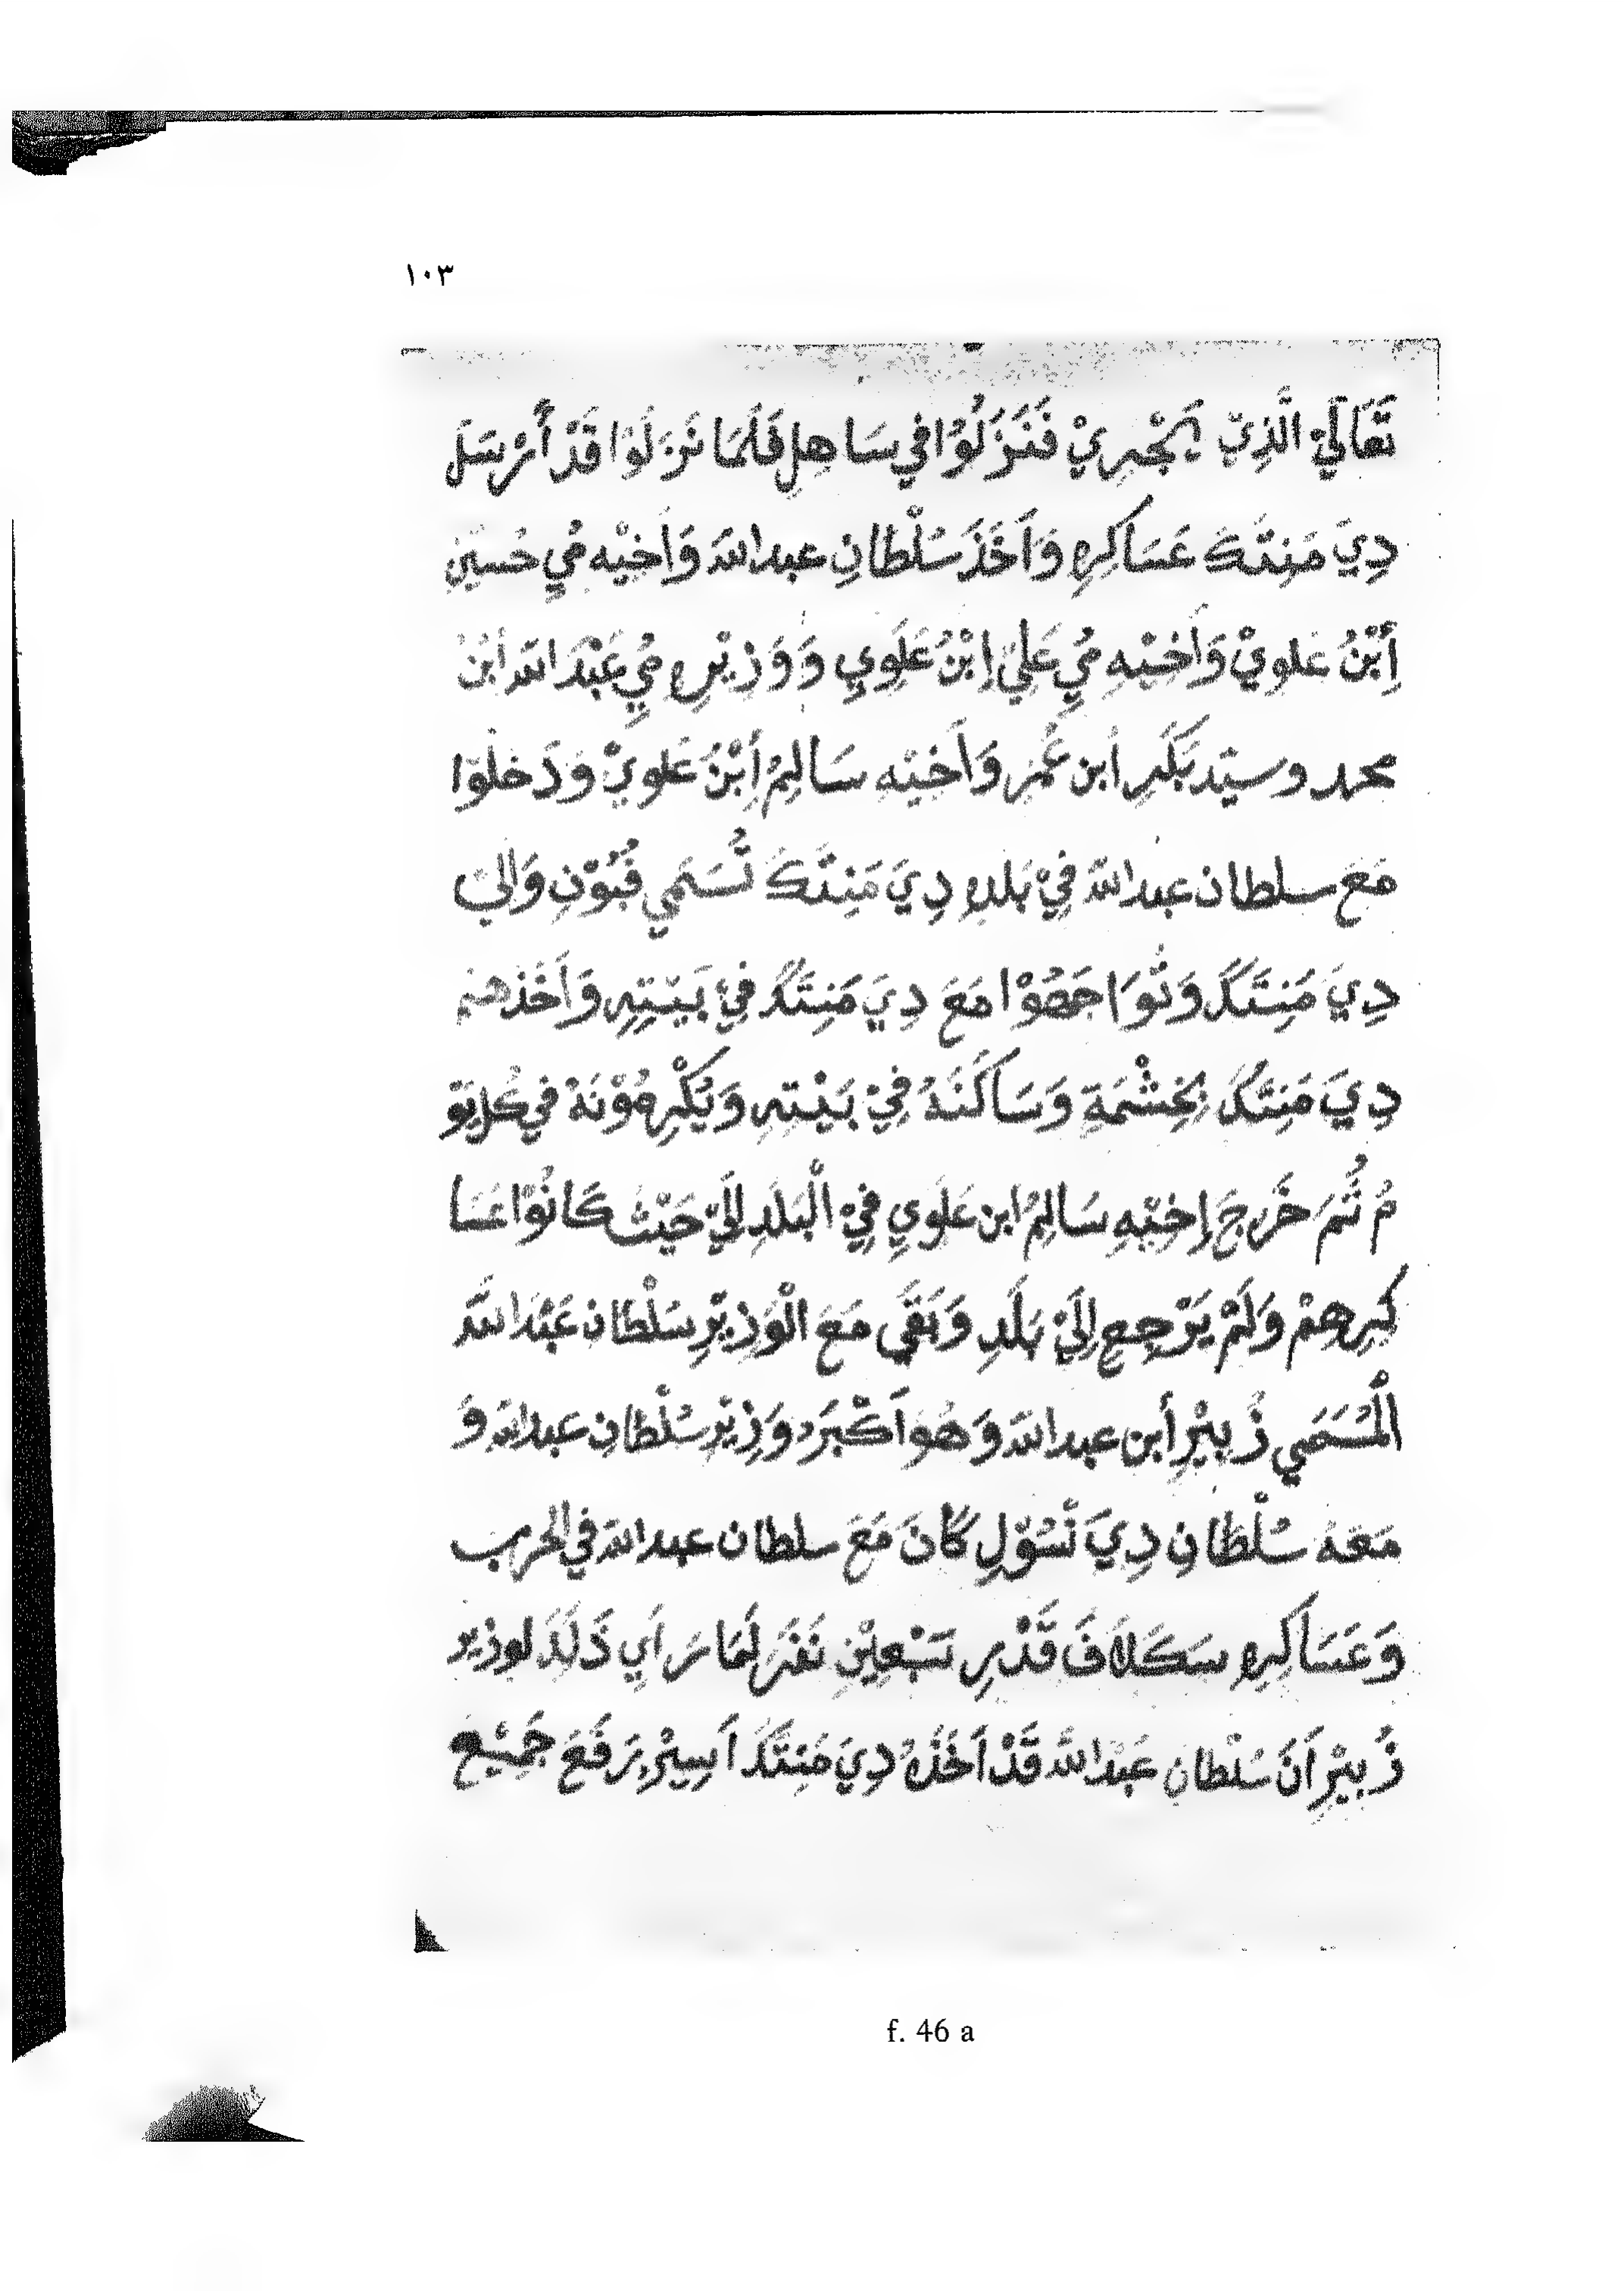 ١٠٣
تَعَالَيْ الَّذِيْ يَجْرِيْ فَنَزَلُوْا في سَاهِلِ فَلَمَا نَزَلُوْا قَدْ أَرْسَلَ
دِيَ مَنِتَّكَ عَسَاكِرِهِ وَاَخَذَ سُلْطَانِ عبدالله وَاَخِيْهِ مُيِ حُسَيْنِ
أِبْنُ عَلَوِيْ وَاَخِيْهِ مُيِ عَلِيِّ إِبْنُ عَلَوِيِ وَوَزِيْرِهِ مُيِ عَبْدَالله أبْنُ
محمد وسيّد بَكَرِ أبن عُمَر وَاَخِيْهِ سَالِمُ أِبْنُ عَلَوِيْ وَدَخَلُوْا
مَعَ سلطان عبدالله فِيْ بَلَدِهِ دِيَ مَنِتَّكَ تُسَمَي فُبُوْنِ وَالِيْ
دِيَ مَنِتَّكَ وَتُوَاجَهُوْا مَعَ دِيَ مَنِتَّكَ فِيْ بَيْتِهِ وَاَخَذَهُمْ
دِيَ مَنِتَّكَ بِخِشْمَةِ وَسَاكَنَهُ فِيْ بَيْتِهِ وَيُكْرِمُوْنَهُ في كُلِ يَوْ
مُ ثُمَ خَرَجَ إِخِيْهِ سَالِمُ ابن عَلَوِي فِيْ الْبَلَدِ لِلَيْ حَيْثُ كَانُوْا عَسَا
كِرِهِمْ وَلَمْ يَرْجِعِ إِلَيْ بَلَدِ وَبَقَي مَعَ الْوَزِيْرِ سُلْطَانِ عَبْدَاللهَ
الْمُسَمَي زُبِيْرِ أبن عبدالله وَهُوَ اَكْبَرُ وَزِيْرِ سُلْطَانِ عبدالله وَ
مَعَهُ سُلْطَانِ دِيَ نْسُوْلِ كَانَ مَعَ سلطان عبدالله في الحرب
وَعَسَاكِرِهِ سَكَلَافَ قَدْرِ سَبْعِيْنِ نَفَرَ لَمَا رَاَي ذَلَكَ لوزير
زُبِيْرِ اَنَ سُلْطَانِ عَبْدَاللهَ قَدْ اَخَذَهُ دِيَ مَنِتَّكَ اَسِيْرِ رَفَعَ جَمِيْعِ
f. 46 a